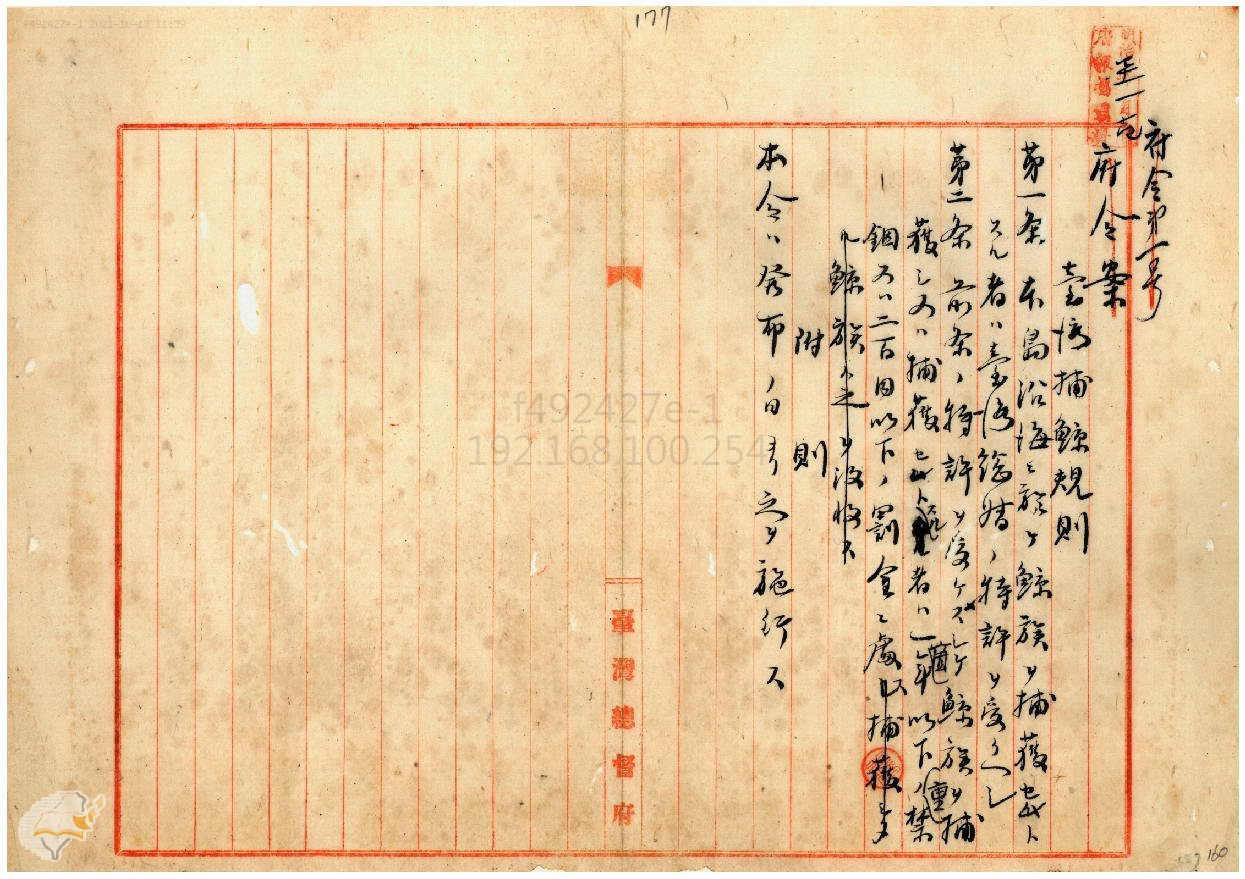 f492427e-1 2021-10-13 11:59
177
府令第一号
府令案
臺湾捕鯨規則
第一条 本島沿海ニ於テ鯨族ヲ捕獲セムト
スル者ハ臺湾総督ノ特許ヲ受クヘシ
第二条 前条ノ特許ヲ受ケスシテ鯨族ヲ捕
獲シ又ハ捕獲セムトシタル者ハ一箇年以下ノ重禁
錮又ハ二百円以下ノ罰金ニ處シ捕獲シタ
ル鯨族ハ之ヲ没收ス
附 則
本令ハ発布ノ日ヨリ之ヲ施行ス
臺灣總督府
f492427e-1
192.168.100.254
160